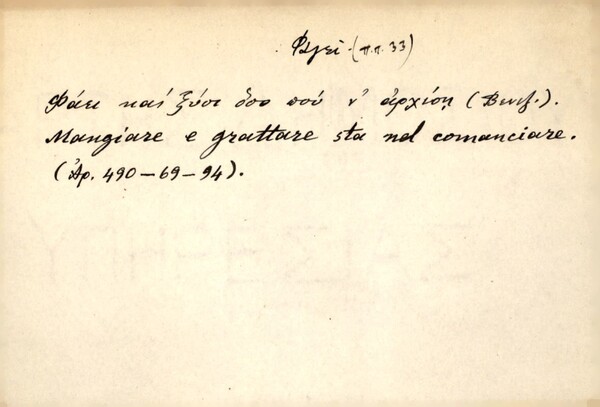 Φαγεί (π.π. 33)
Φάει καί ξύσι ὅσο πού ν' ἀρχίσῃ (Βενιζ.).
Mangiare e grattare sta nel comanciare.
(Ἀρ. 490-69-94).